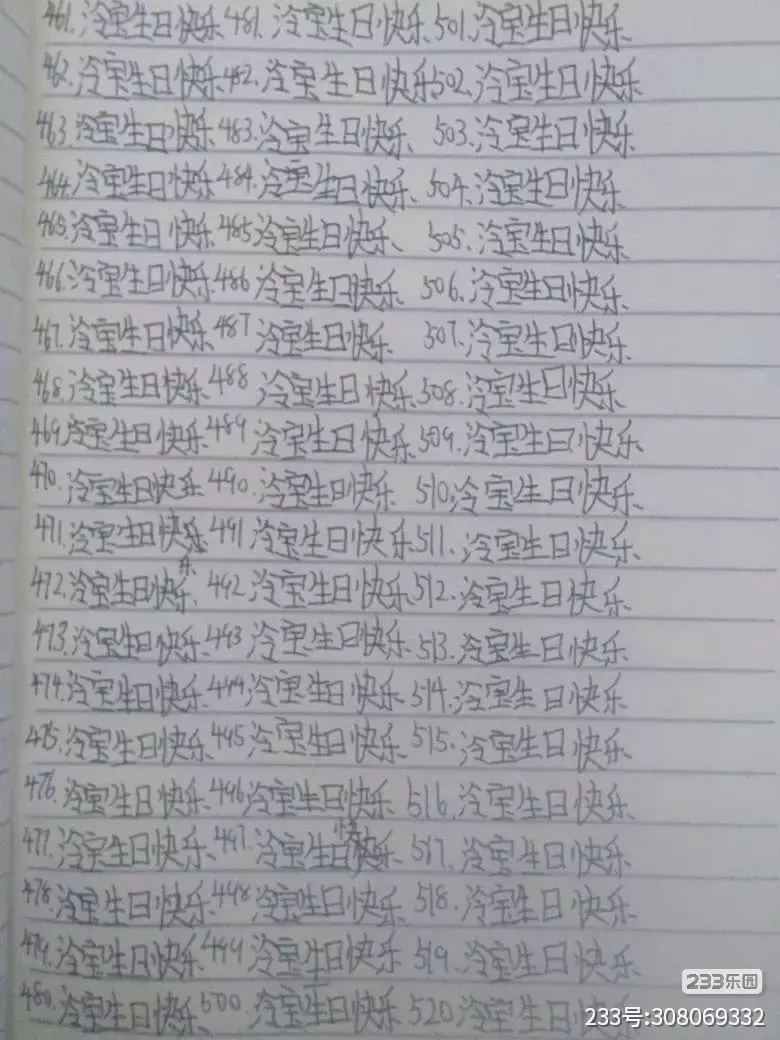 461.冷宝生日快乐 481.冷宝生日快乐 501.冷宝生日快乐
462.冷宝生日快乐 482.冷宝生日快乐 502.冷宝生日快乐
463.冷宝生日快乐 483.冷宝生日快乐 503.冷宝生日快乐
464.冷宝生日快乐 484.冷宝生日快乐 504.冷宝生日快乐
465.冷宝生日快乐 485冷宝生日快乐 505.冷宝生日快乐
466.冷宝生日快乐 486冷宝生日快乐 506.冷宝生日快乐
467.冷宝生日快乐 487冷宝生日快乐 507.冷宝生日快乐
468.冷宝生日快乐 488冷宝生日快乐 508.冷宝生日快乐
469.冷宝生日快乐 489冷宝生日快乐 509.冷宝生日快乐
470.冷宝生日快乐 490.冷宝生日快乐 510.冷宝生日快乐
471.冷宝生日快乐 491冷宝生日快乐 511.冷宝生日快乐
472.冷宝生日快乐 492冷宝生日快乐 512.冷宝生日快乐
473.冷宝生日快乐 493冷宝生日快乐 513.冷宝生日快乐
474.冷宝生日快乐 494冷宝生日快乐 514.冷宝生日快乐
475.冷宝生日快乐 495冷宝生日快乐 515.冷宝生日快乐
476.冷宝生日快乐 496冷宝生日快乐 516.冷宝生日快乐
477.冷宝生日快乐 497.冷宝生日快乐 517.冷宝生日快乐
478.冷宝生日快乐 498冷宝生日快乐 518.冷宝生日快乐
479.冷宝生日快乐 499冷宝生日快乐 519.冷宝生日快乐
480.冷宝生日快乐 500.冷宝生日快乐 520冷宝生日快乐
233乐园
233号:308069332